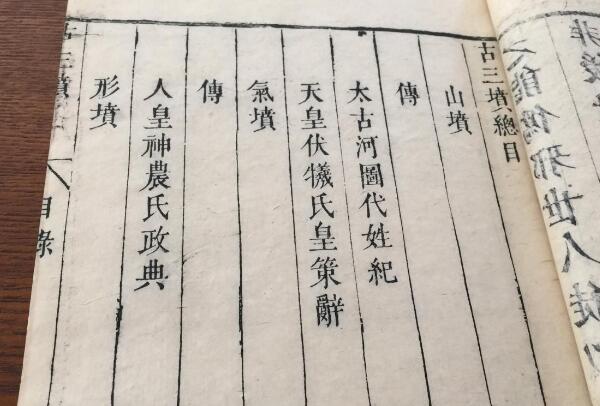 古三墳總目
山墳
傳
太古河圖代姓紀
天皇伏犧氏皇策辭
氣墳
傳
人皇神農氏政典
形墳
目錄